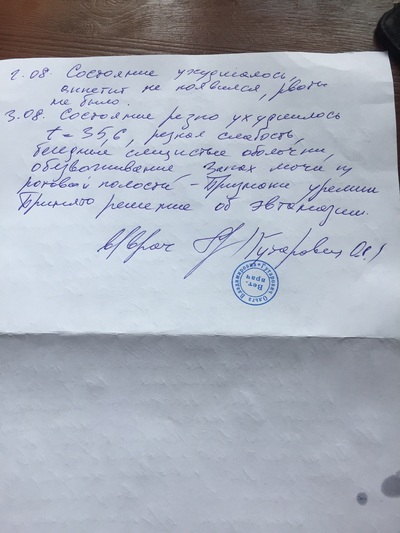 2.08. Состояние ухудшалось,
аппетит не появился, рвоты
не было.
3.08. Состояние резко ухудшилось
t = 35,6, резкая слабость,
бледные слизистые оболочки,
обезвоживание, Запах мочи из
ротовой полости, - Признаки уремии
Принято решение об эвтаназии.
в/врач
Вет.
врач